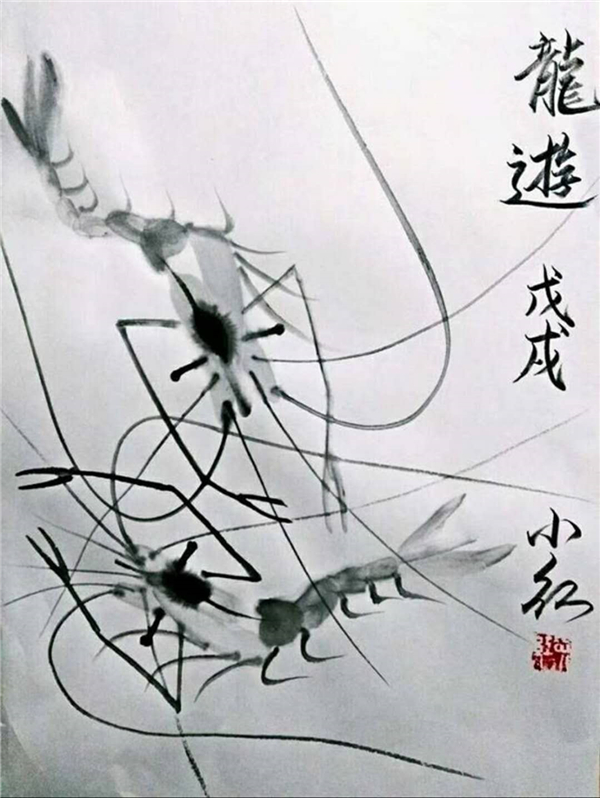 龍遊
戊戌
小紅